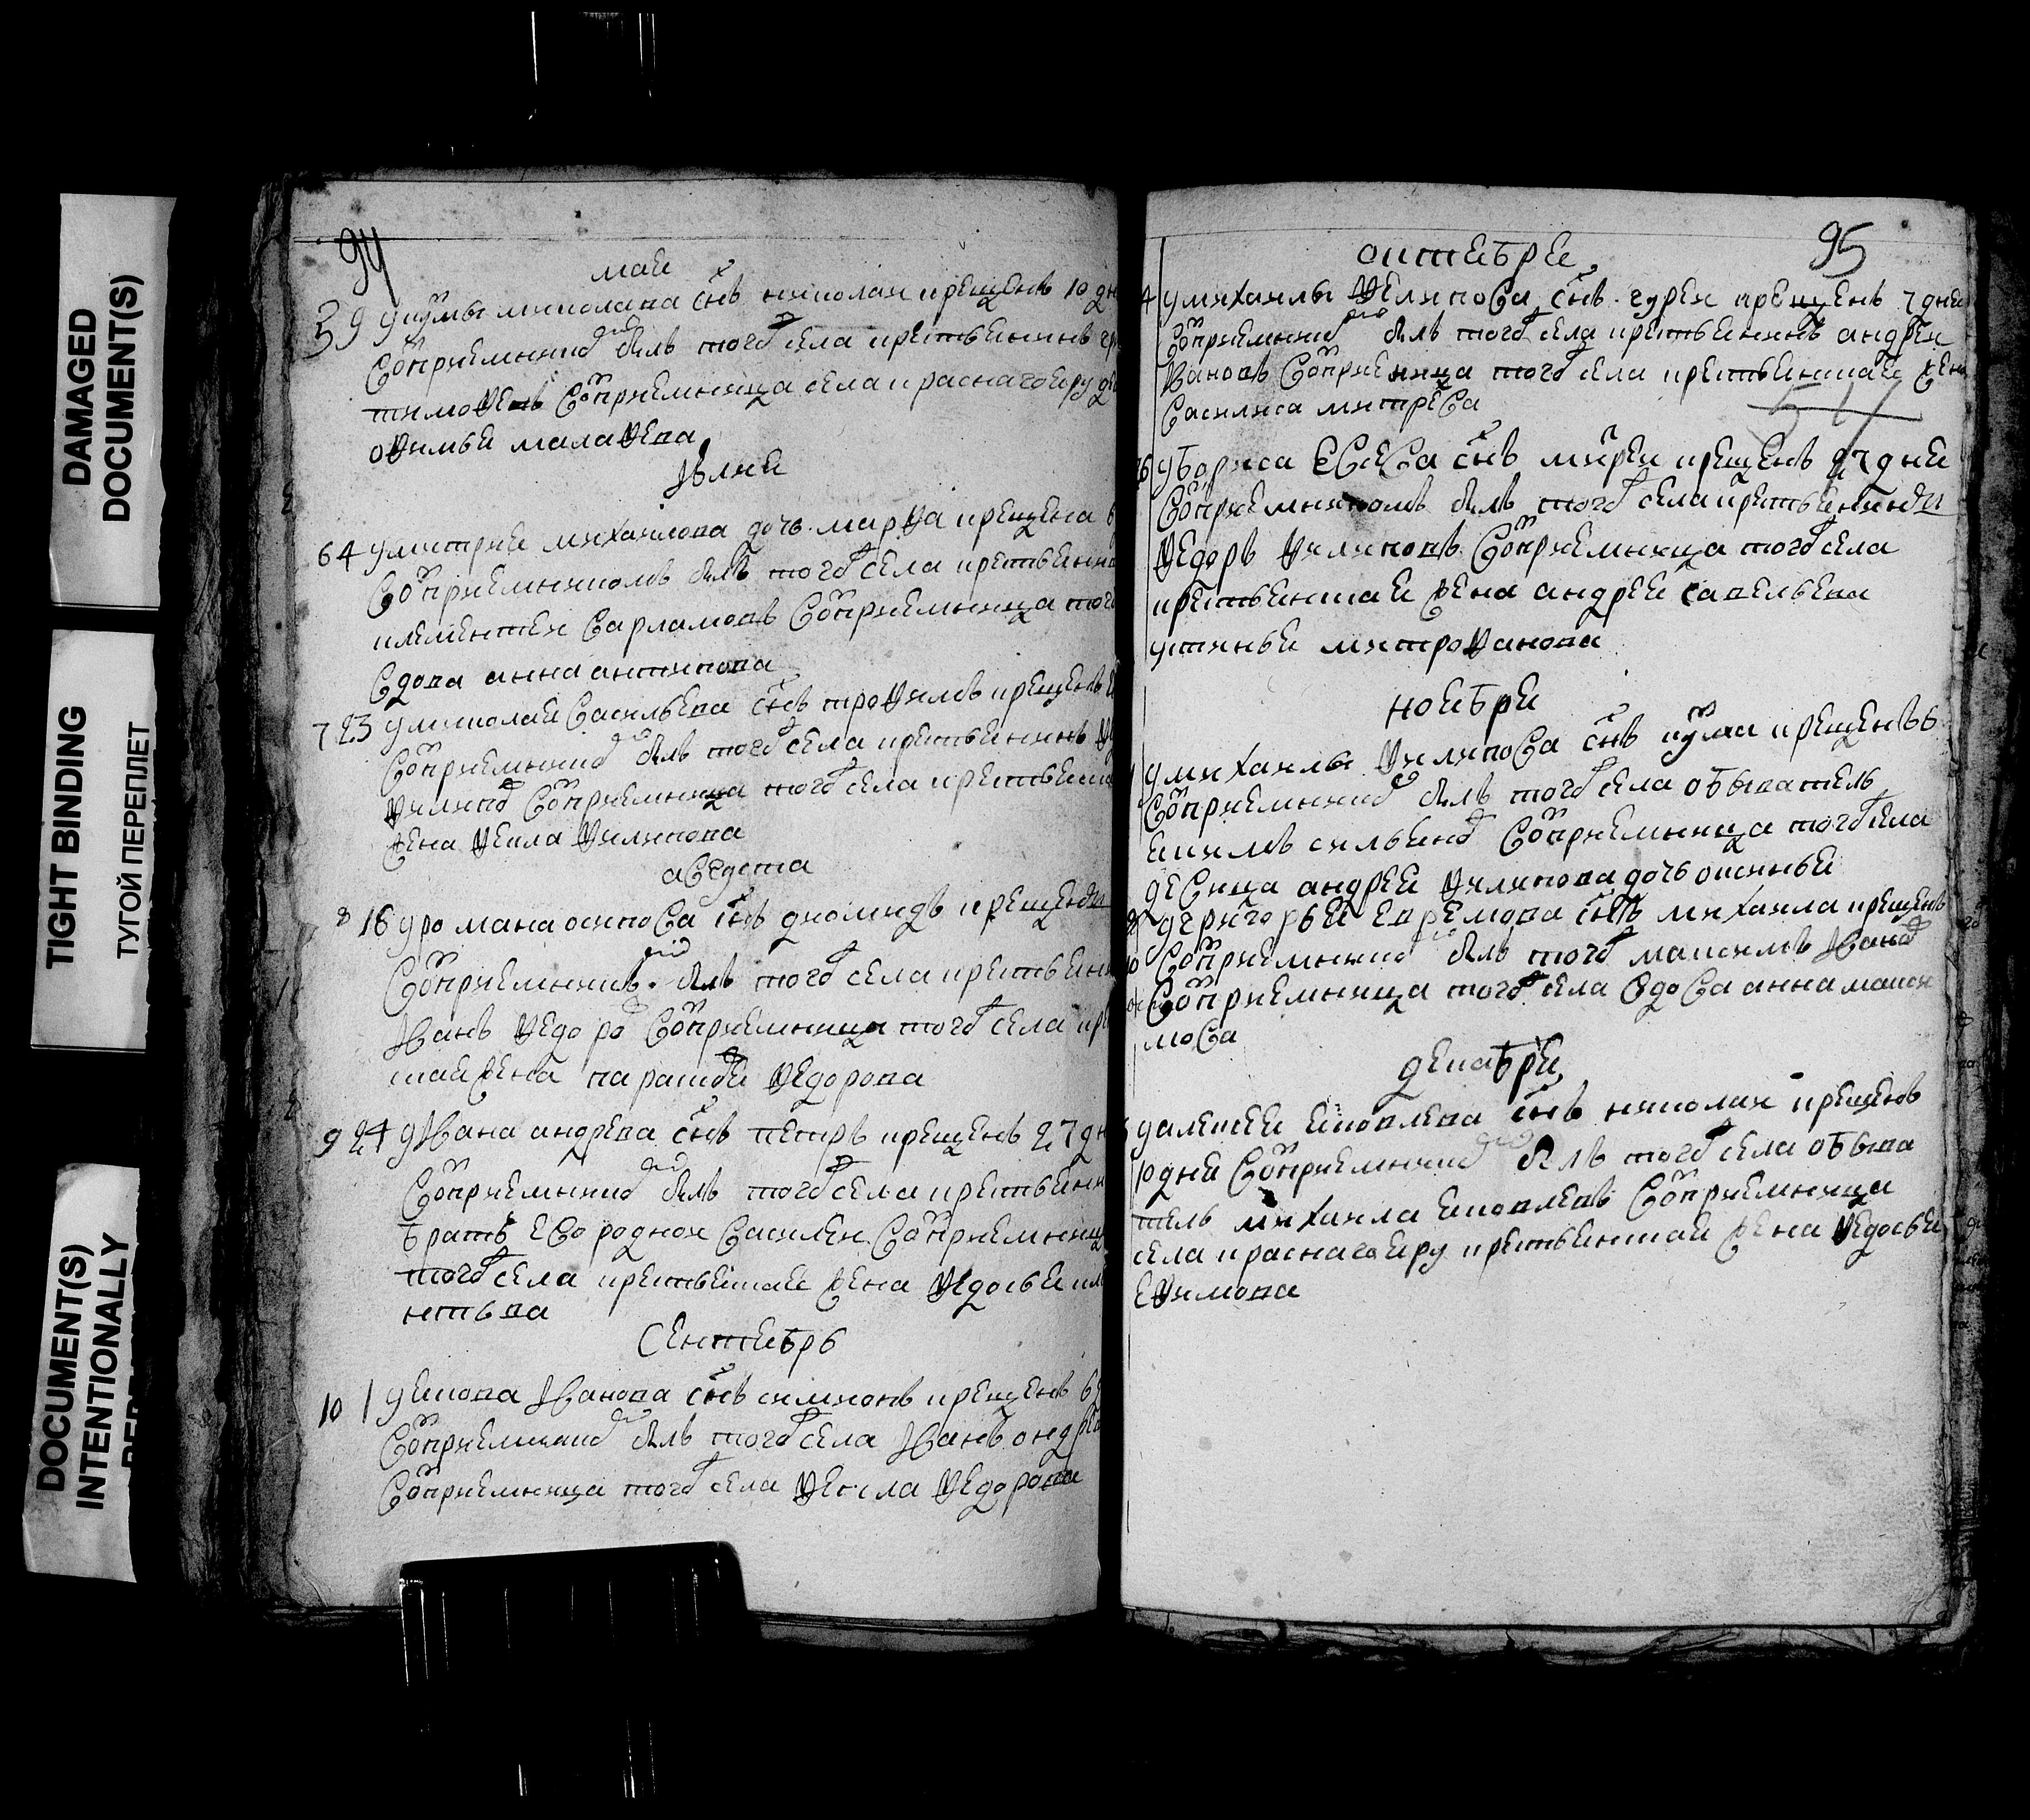 DAMAGED
DOCUMENT(S)
TIGHT BINDING
ТУГОЙ ПЕРЕПЛЕТ
DOCUMENT(S)
INTENTIONALLY
94
маи
5 9 у кузмы николаева снъ николаи крещенъ 10 дн
восприемником былъ того села крестьянинъ
тимофеевъ восприемница села краснаго яру
офимья малафеева
июния
6 4 у митрия михаилова дочь марфа крещена 6
восприемникомъ былъ того села крестьянин
клементеи варламовъ восприемница того
вдова анна антипова
7 23 у николая василиева снъ трофимъ крещенъ
восприемником былъ того села крестьянинъ
филипов восприемница того села крестьянская
жена фекла филипова
августа
8 16 у романа осипова снъ диомидъ крещенъ
восприемником былъ того села крестьянин
иванъ федоров восприемница того села кре
ская жена парасковя федорова
9 24 у ивана андрева снъ петръ крещенъ 27 дн
восприемником былъ того села крестьянин
братъ ево роднои василеи восприемница
того села крестьянская жена федосья
нтьва
сентябрь
10 1 у якова иванова снъ симионъ крещенъ 6
восприемником былъ того села иванъ андрея
восприемница того села фекла федорова
95
октября
4 у михаилы филипова снъ гуреи крещенъ 7 дня
восприемником былъ того села крестьянинъ андреи
ивановъ восприемница того села крестьянская жена
василиса митрева
у бориса евсева снъ андреи крещенъ 27 дня
восприемникомъ былъ того села крестьянинъ
федоръ филиповъ восприемница того села
крестьянская жена андрея савельева
устинья митрофанова
ноября
у михаилы филипова снъ кузма крещенъ 6
восприемником былъ того села обыватель
екимъ сильянов восприемница того села
девица андрея филипова дочь оксинья
у григорья ефремова снъ михаила крещенъ
восприемником былъ того максимъ иванов
восприемница того села вдова анна макси
мова
декабря
у алексея яковлева снъ николаи крещенъ
10 дня восприемником былъ того села обыва
тель михаила яковлевъ восприемница
села краснаго яру крестьянская жена федосья
ефимова